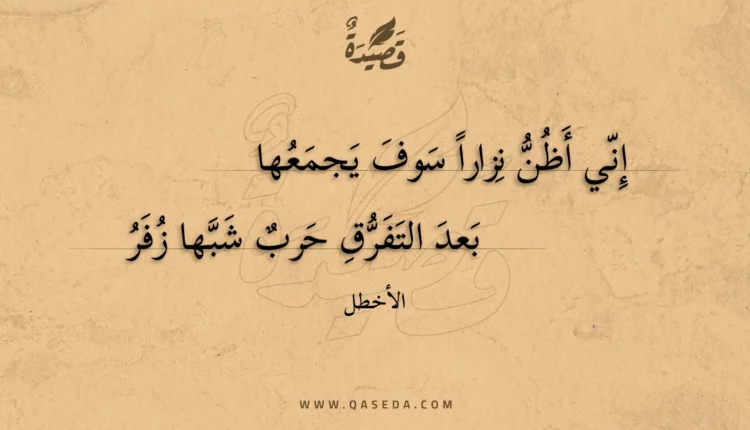 قَصِيدَةٌ
إِنّي أَظُنُّ نِزاراً سَوفَ يَجمَعُها
بَعدَ التَفَرُّقِ حَربٌ شَبَّها زُفَرُ
الأخطل
WWW.QASEDA.COM